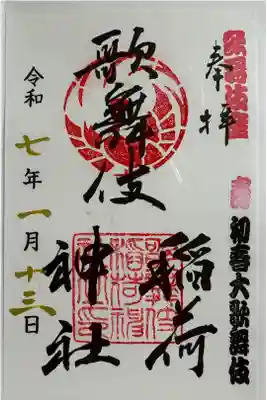 歌舞伎座
奉拝
壽
初春大歌舞伎
歌舞伎
稲荷
神社
令和七年一月十三日